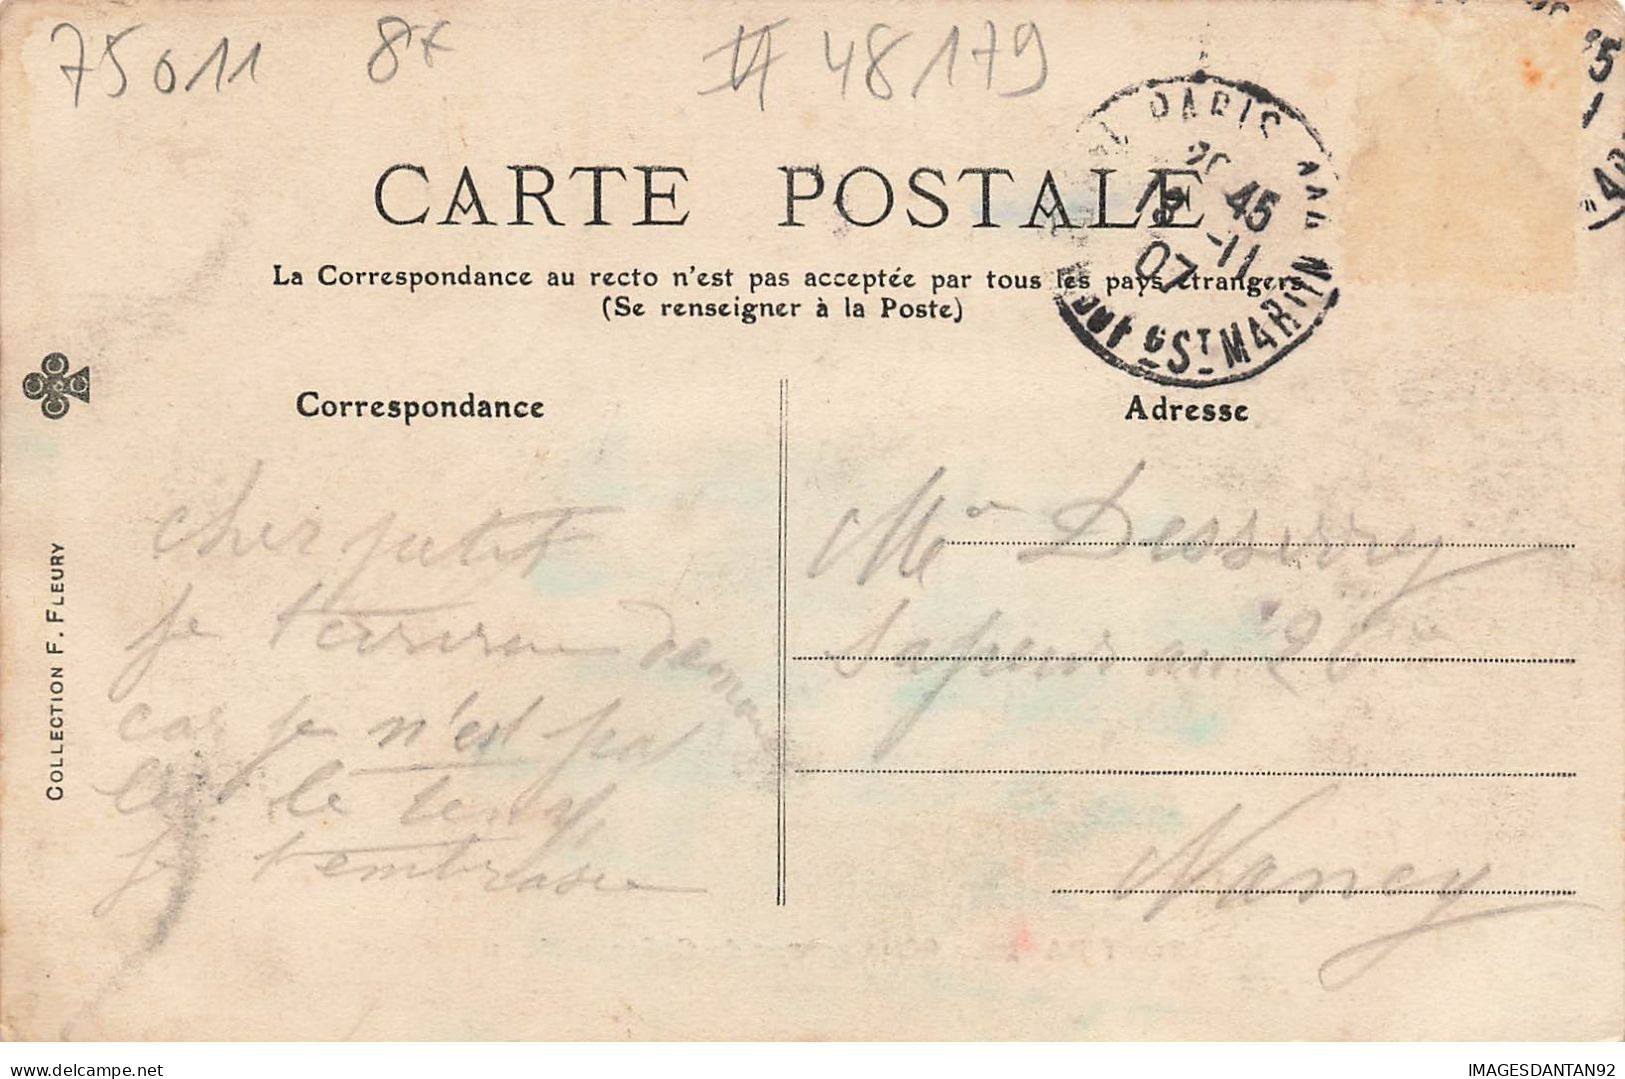 75011 8€ 48179
CARTE POSTALE
PARIS
18 45
-11
07
Fg St MARTIN
La Correspondance au recto n'est pas acceptée par tous les pays étrangers
(Se renseigner à la Poste)
Correspondance
Adresse
COLLECTION F. FLEURY
cher petit
je t'écrirai demain
car je n'est pas
le temps
je t'embrasse
Mr Dessirey
Sapeur au 26
Nancy
www.delcampe.net
IMAGESDANTAN92